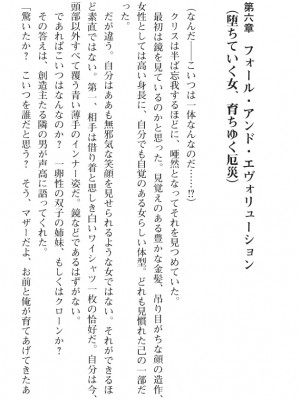 第六章　フォール・アンド・エヴォリューション
（堕ちていく女、育ちゆく厄災）
（なんだ――こいつは一体なんなのだ……!?）
クリスは半ば忘我するほどに、唖然となってそれを見つめていた。
最初は鏡を見ているのかと思った。見覚えのある豊かな金髪、吊り目がちな顔の造作、
女性としては高い身長に、自分でも自覚のある女らしい体型。どれも見慣れた己の一部だ
った。
だが違う。自分はああも無邪気な笑顔を見せられるような女ではない。それができるほ
ど素直ではない。第一、相手は借り着と思しき白いワイシャツ一枚の恰好だ。自分は今、
頭部以外すべて覆う青い薄手のインナー姿だ。鏡などであるはずがない。
であればこいつはなんなのか？　一卵性の双子の姉妹、もしくはクローンか？
その答えは、創造主たる隣の男が声高に語ってくれた。
「驚いたか？　こいつを誰だと思う？　そう、マザーだよ、お前と俺が育てあげてきたあ